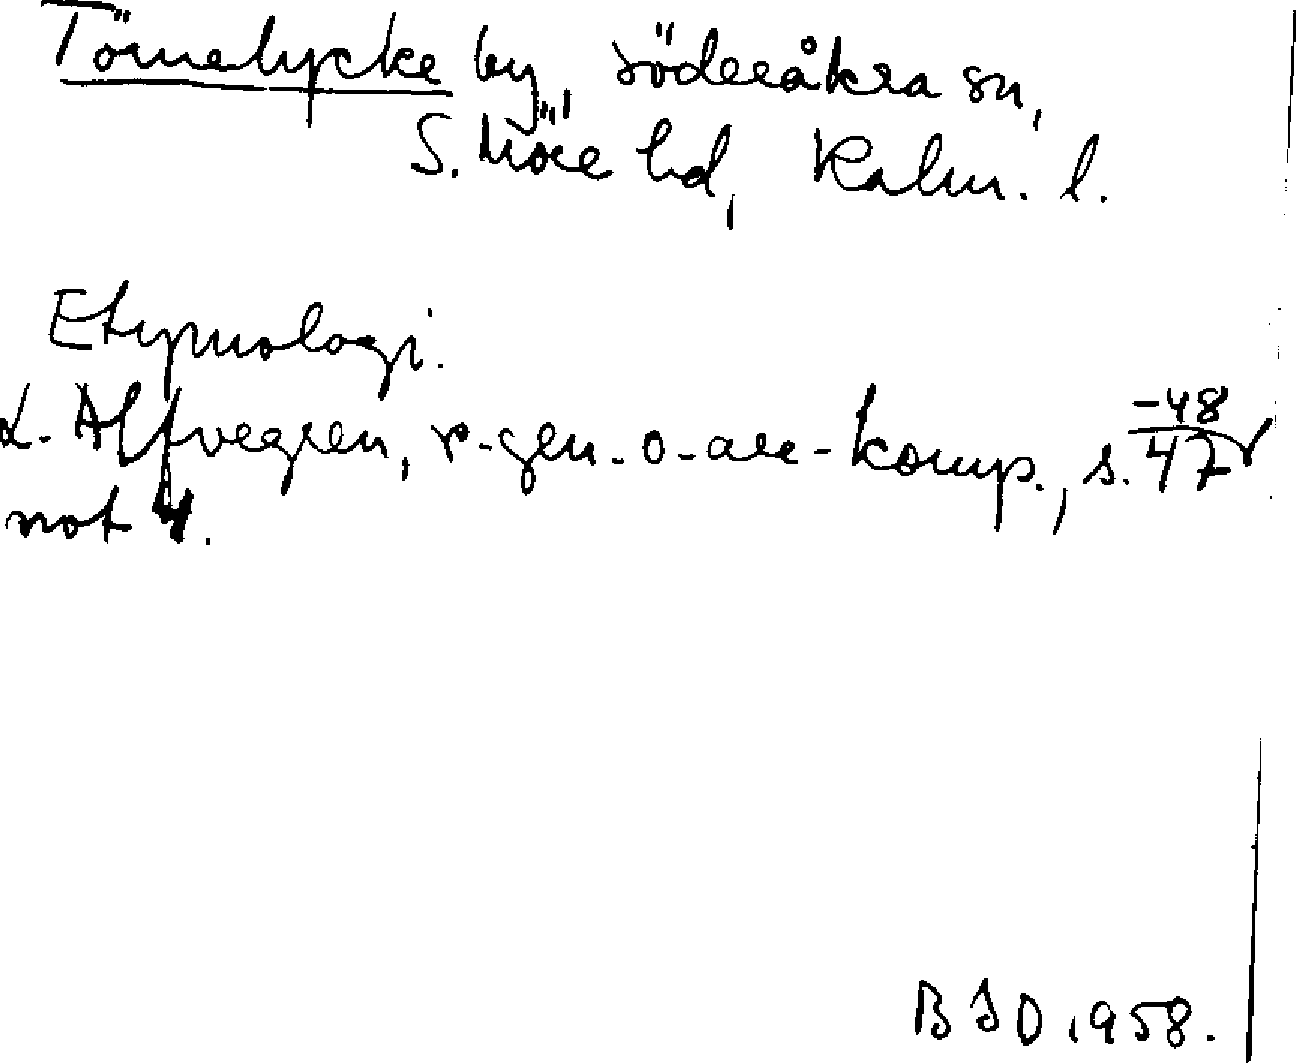 Törnelycke by, Söderåkra sn,
S. Möre hd, Kalm. l.
Etymologi.
L. Alfvegren, r-gen. o-are-komp., s. 47-48
not 4.
BSD 1958.